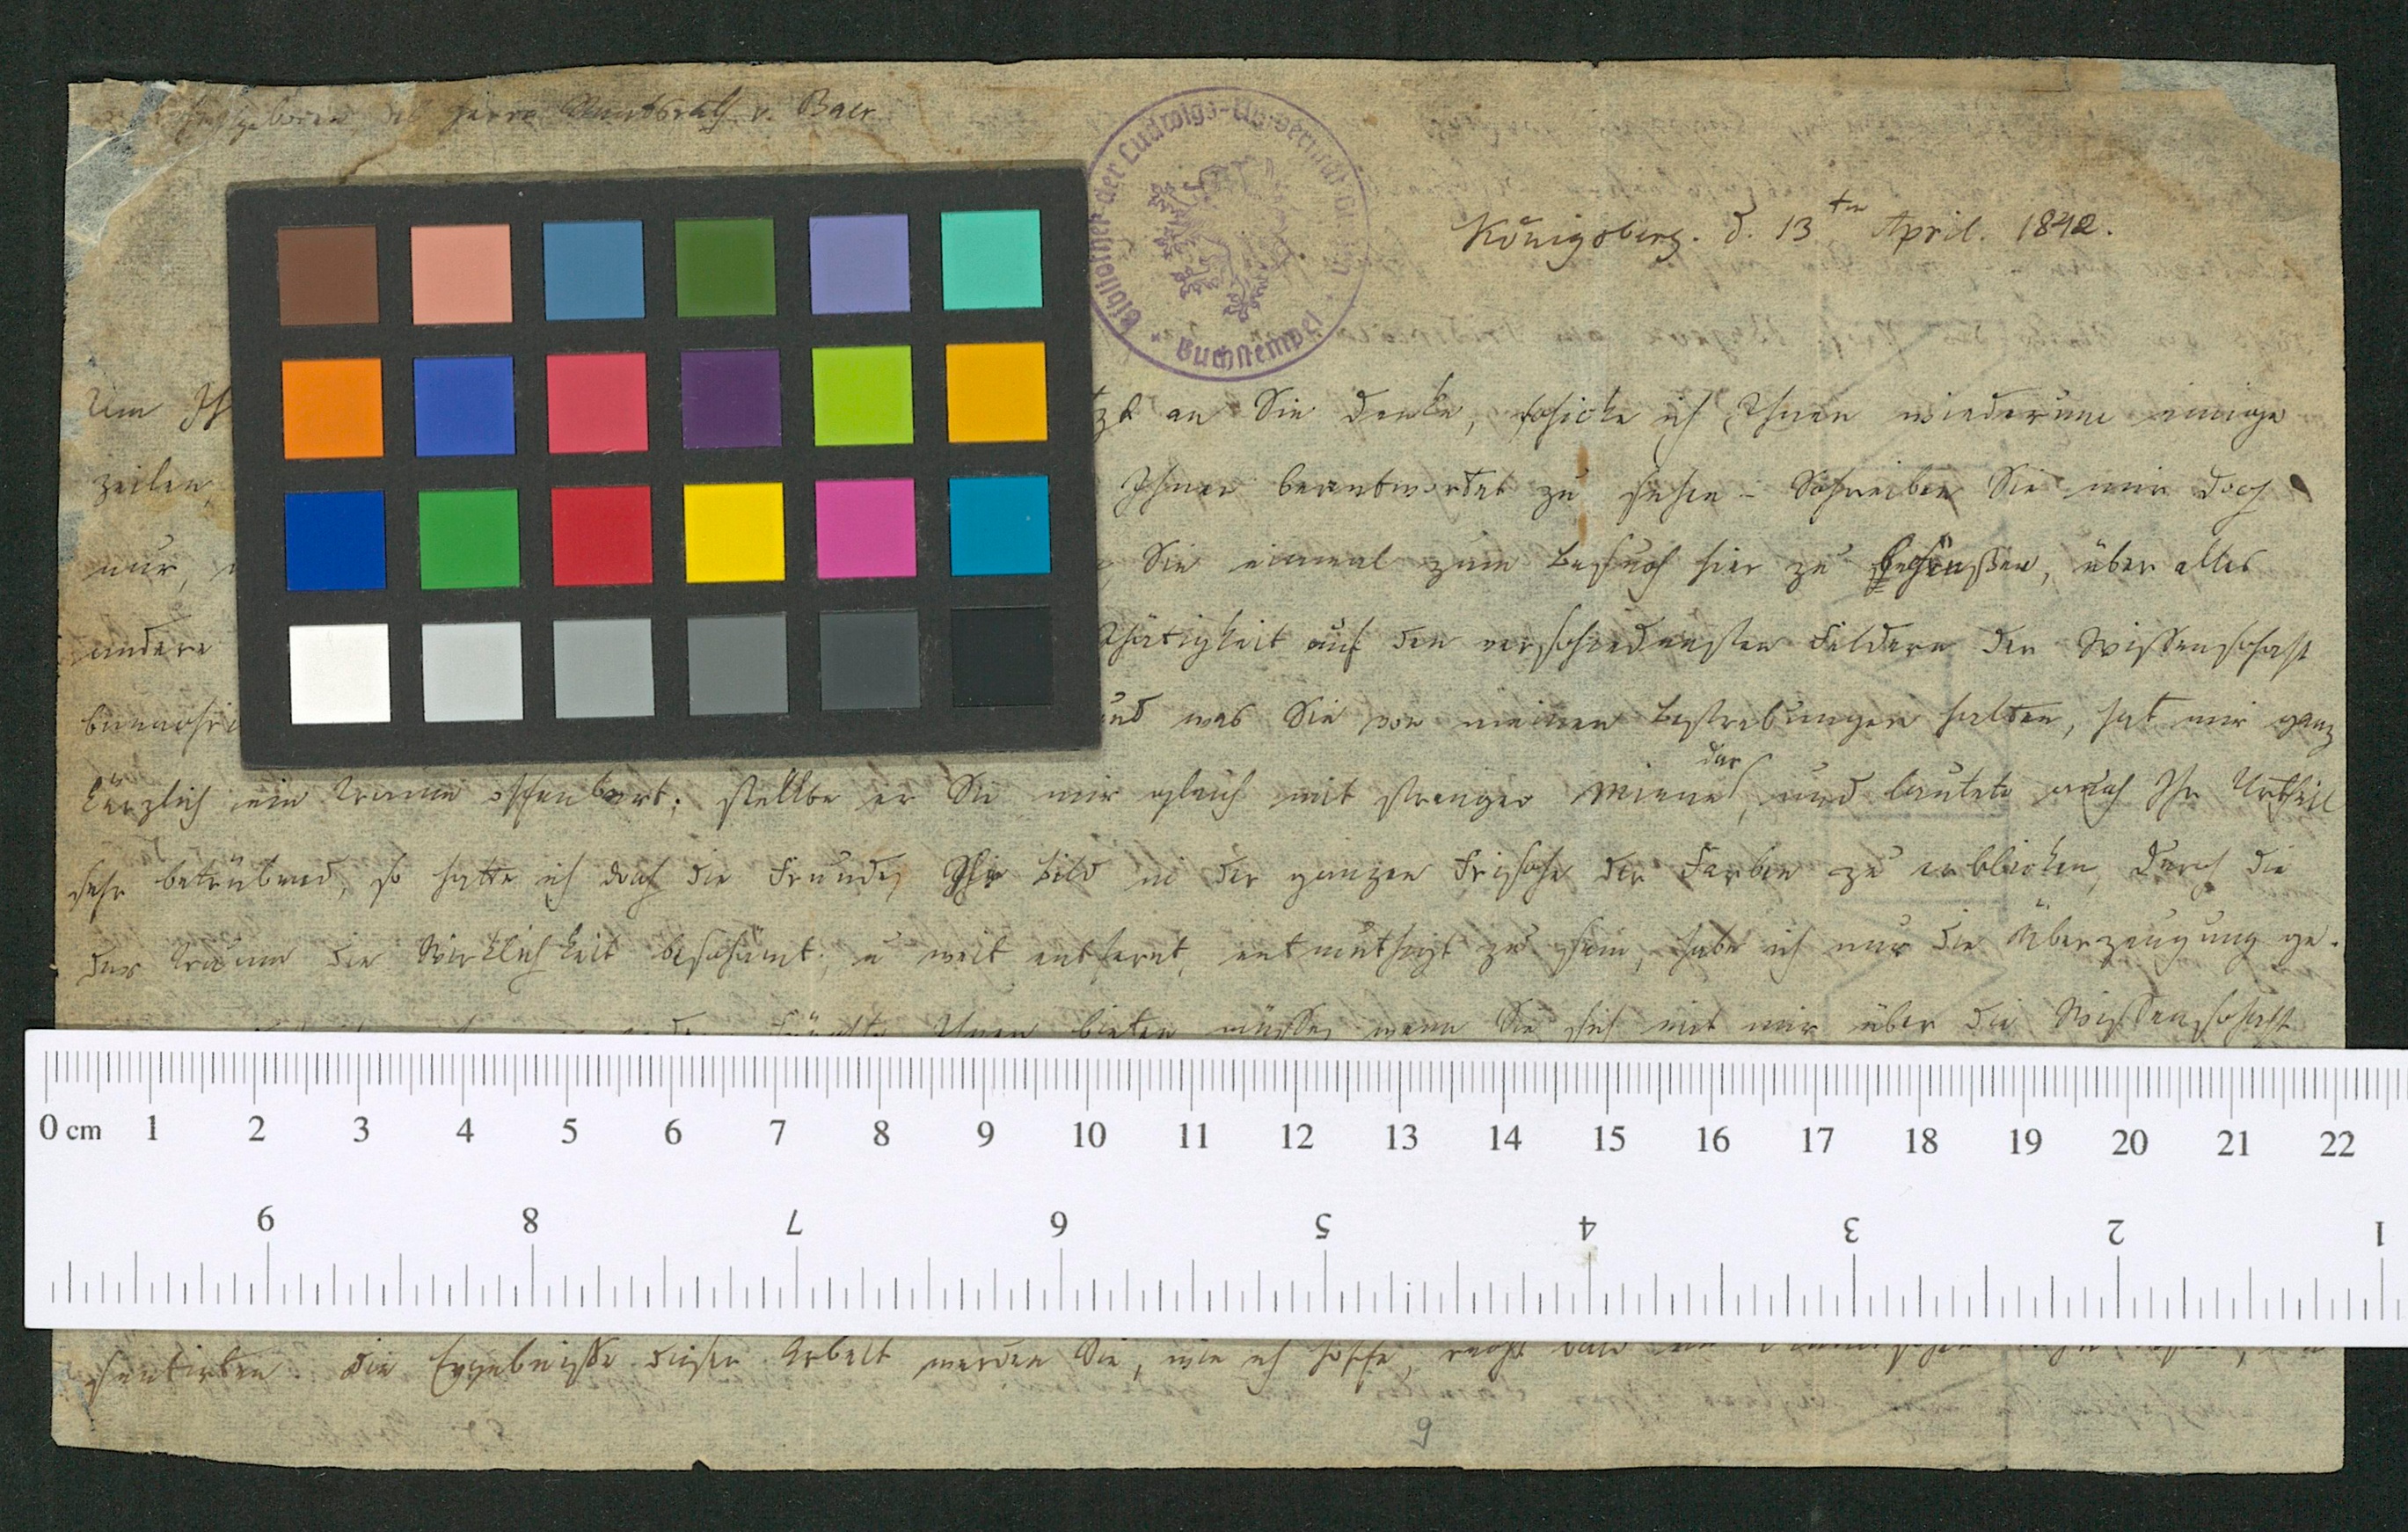 Hochgeboren des Herrn v. Baer
Bibliothek der Ludwigs-Universität
* Buchstempel *
Königsberg. d. 13ten April. 1842.
Um an Sie denke, schicke ich Ihnen wiederum einige
Zeilen, Ihnen beantwortet zu sehen - Schreiben Sie mir doch
nur, Sie einmal zum Besuch hier zu über alles
andere Thätigkeit auf den verschiedensten Feldern der Wissenschaft
und was Sie von meinen Bestrebungen halten, hat mir ganz
kürzlich ein Traum offenbart; stellte er Sie mir gleich mit strenger Miene dar, und lautete auch Ihr Urtheil
sehr betrübend, so hatte ich doch die Freude, Ihr Bild in der ganzen Frische der Farben zu erblicken, durch die
der Traum die Wirklichkeit beschämt; u weit entfernt, entmuthigt zu sein, habe ich nur die Überzeugung ge-
Früchte Ihnen bieten müsse, wenn Sie sich mit mir über die Wissenschaft
0 cm 1 2 3 4 5 6 7 8 9 10 11 12 13 14 15 16 17 18 19 20 21 22
9 8 7 6 5 4 3 2 1
Die Ergebnisse dieser Arbeit werden Sie, wie ich hoffe, recht bald